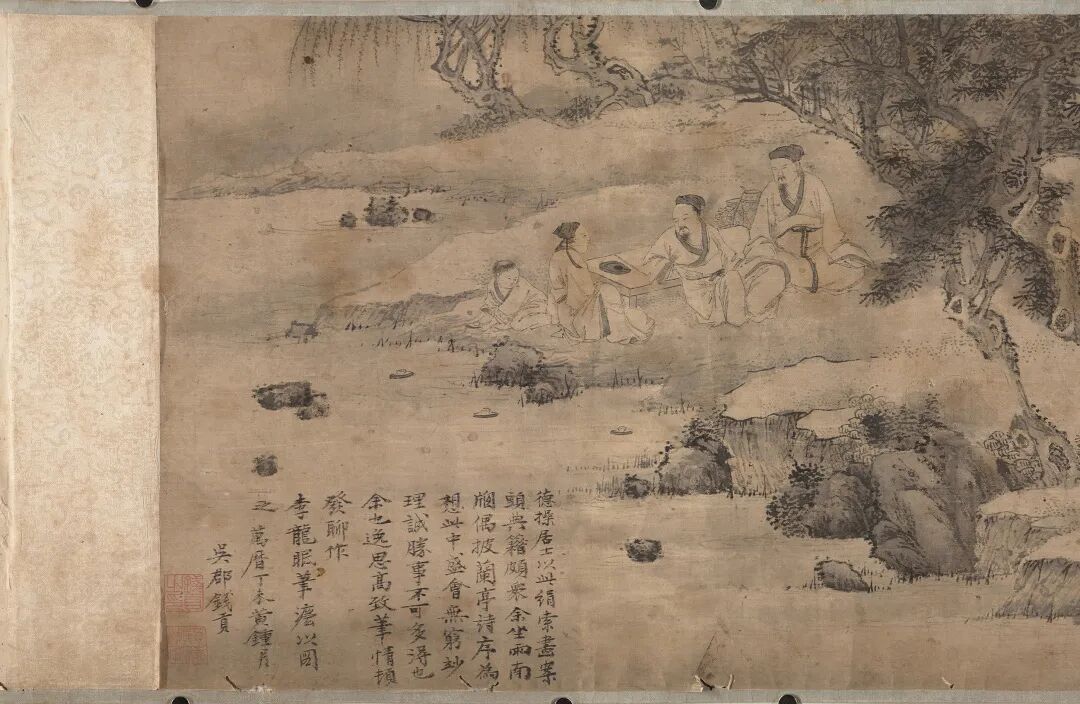 德操居士以此絹索畫案
頭典籍頗衆余坐雨南
牕偶披蘭亭詩序為
想此中盛會無窮妙
理誠勝事不可多得也
余也逸思高致筆情頓
發聊作
李龍眠筆灋以圖
之萬曆丁未黃鍾月
吳郡錢貢